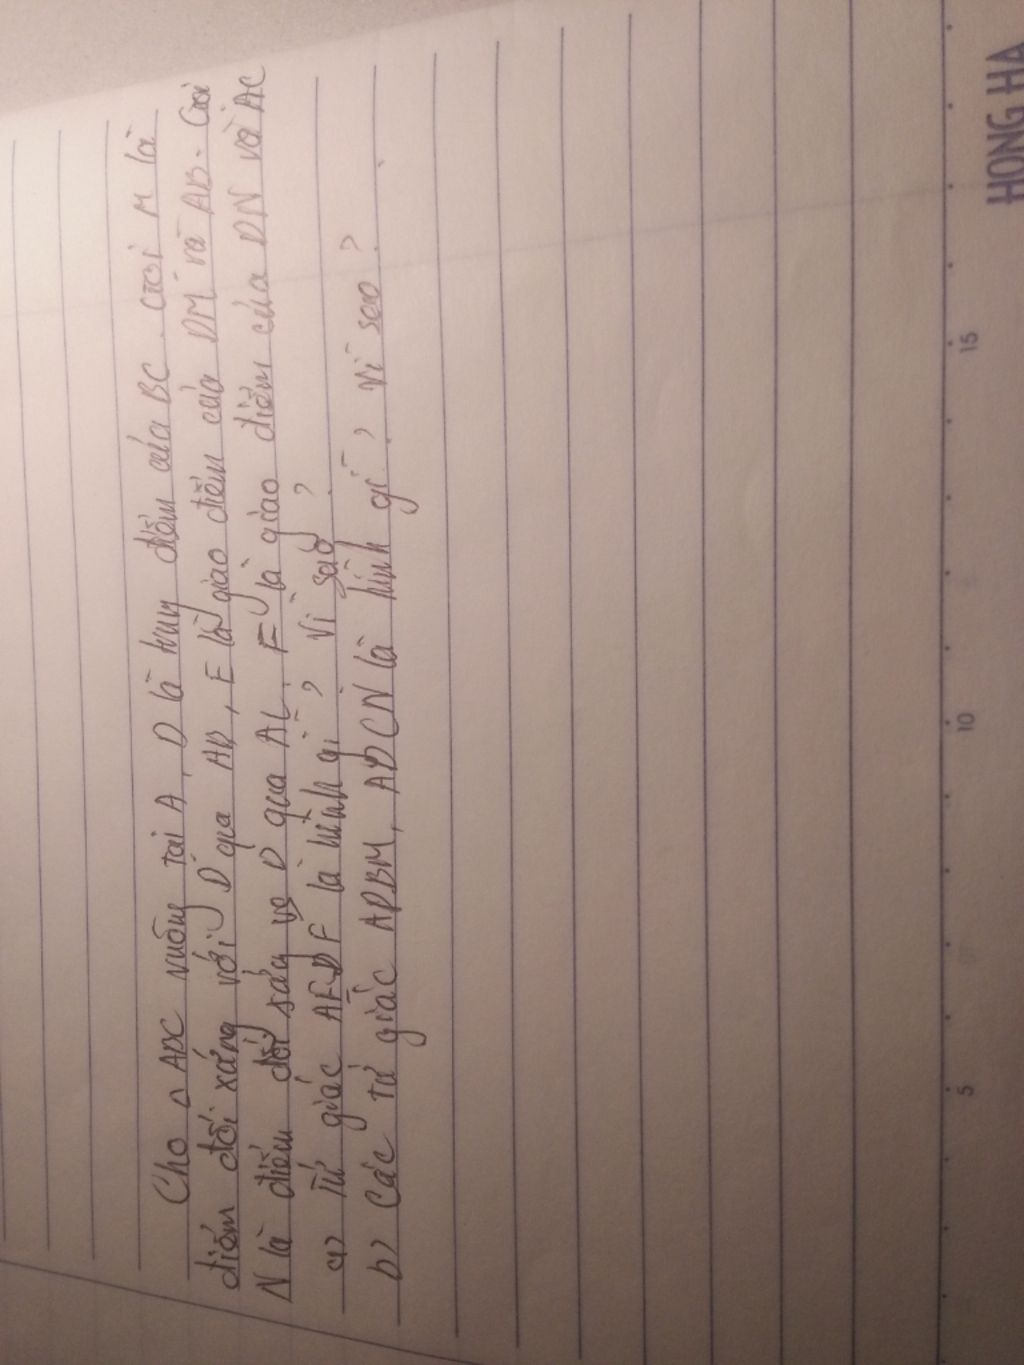 Cho △ ABC vuông tại A, D là trung điểm của BC. Gọi M là
điểm đối xứng với D qua AB, E là giao điểm của DM và AB. Gọi
N là điểm đối xứng vs D qua AC. F là giao điểm của DN và AC
a) Tứ giác AEDF là hình gì? Vì sao?
b) Các tứ giác ADBM, ADCN là hình gì? Vì sao?
5 10 15
HONG HA